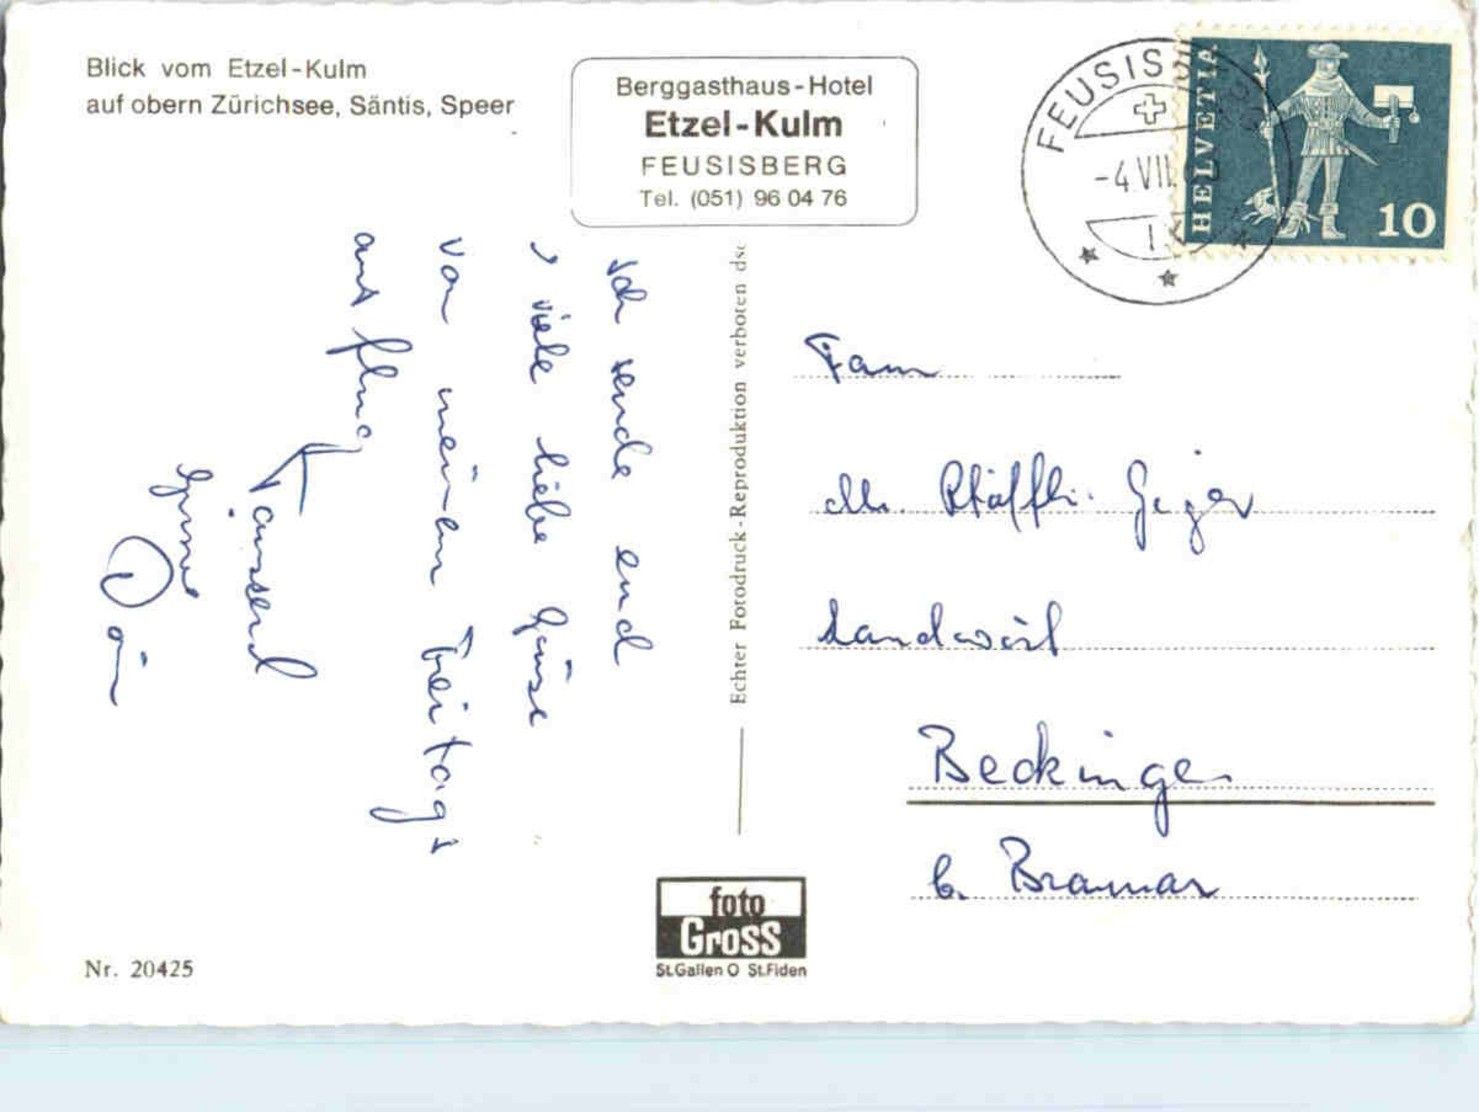 Blick vom Etzel-Kulm
auf obern Zürichsee, Säntis, Speer
Berggasthaus-Hotel
Etzel-Kulm
FEUSISBERG
Tel. (051) 96 04 76
FEUSIS
-4.VII.
HELVETIA
10
Ich sende euch
viele liebe Grüsse
von meinem Freitags
ausflug
Tausend
Grüsse
Echter Fotodruck-Reproduktion verboten dsc
Fam
Pfäffli-Geiger
Landwirt
Beckingen
b. Bramar
foto
Gross
St.Gallen O St.Fiden
Nr. 20425